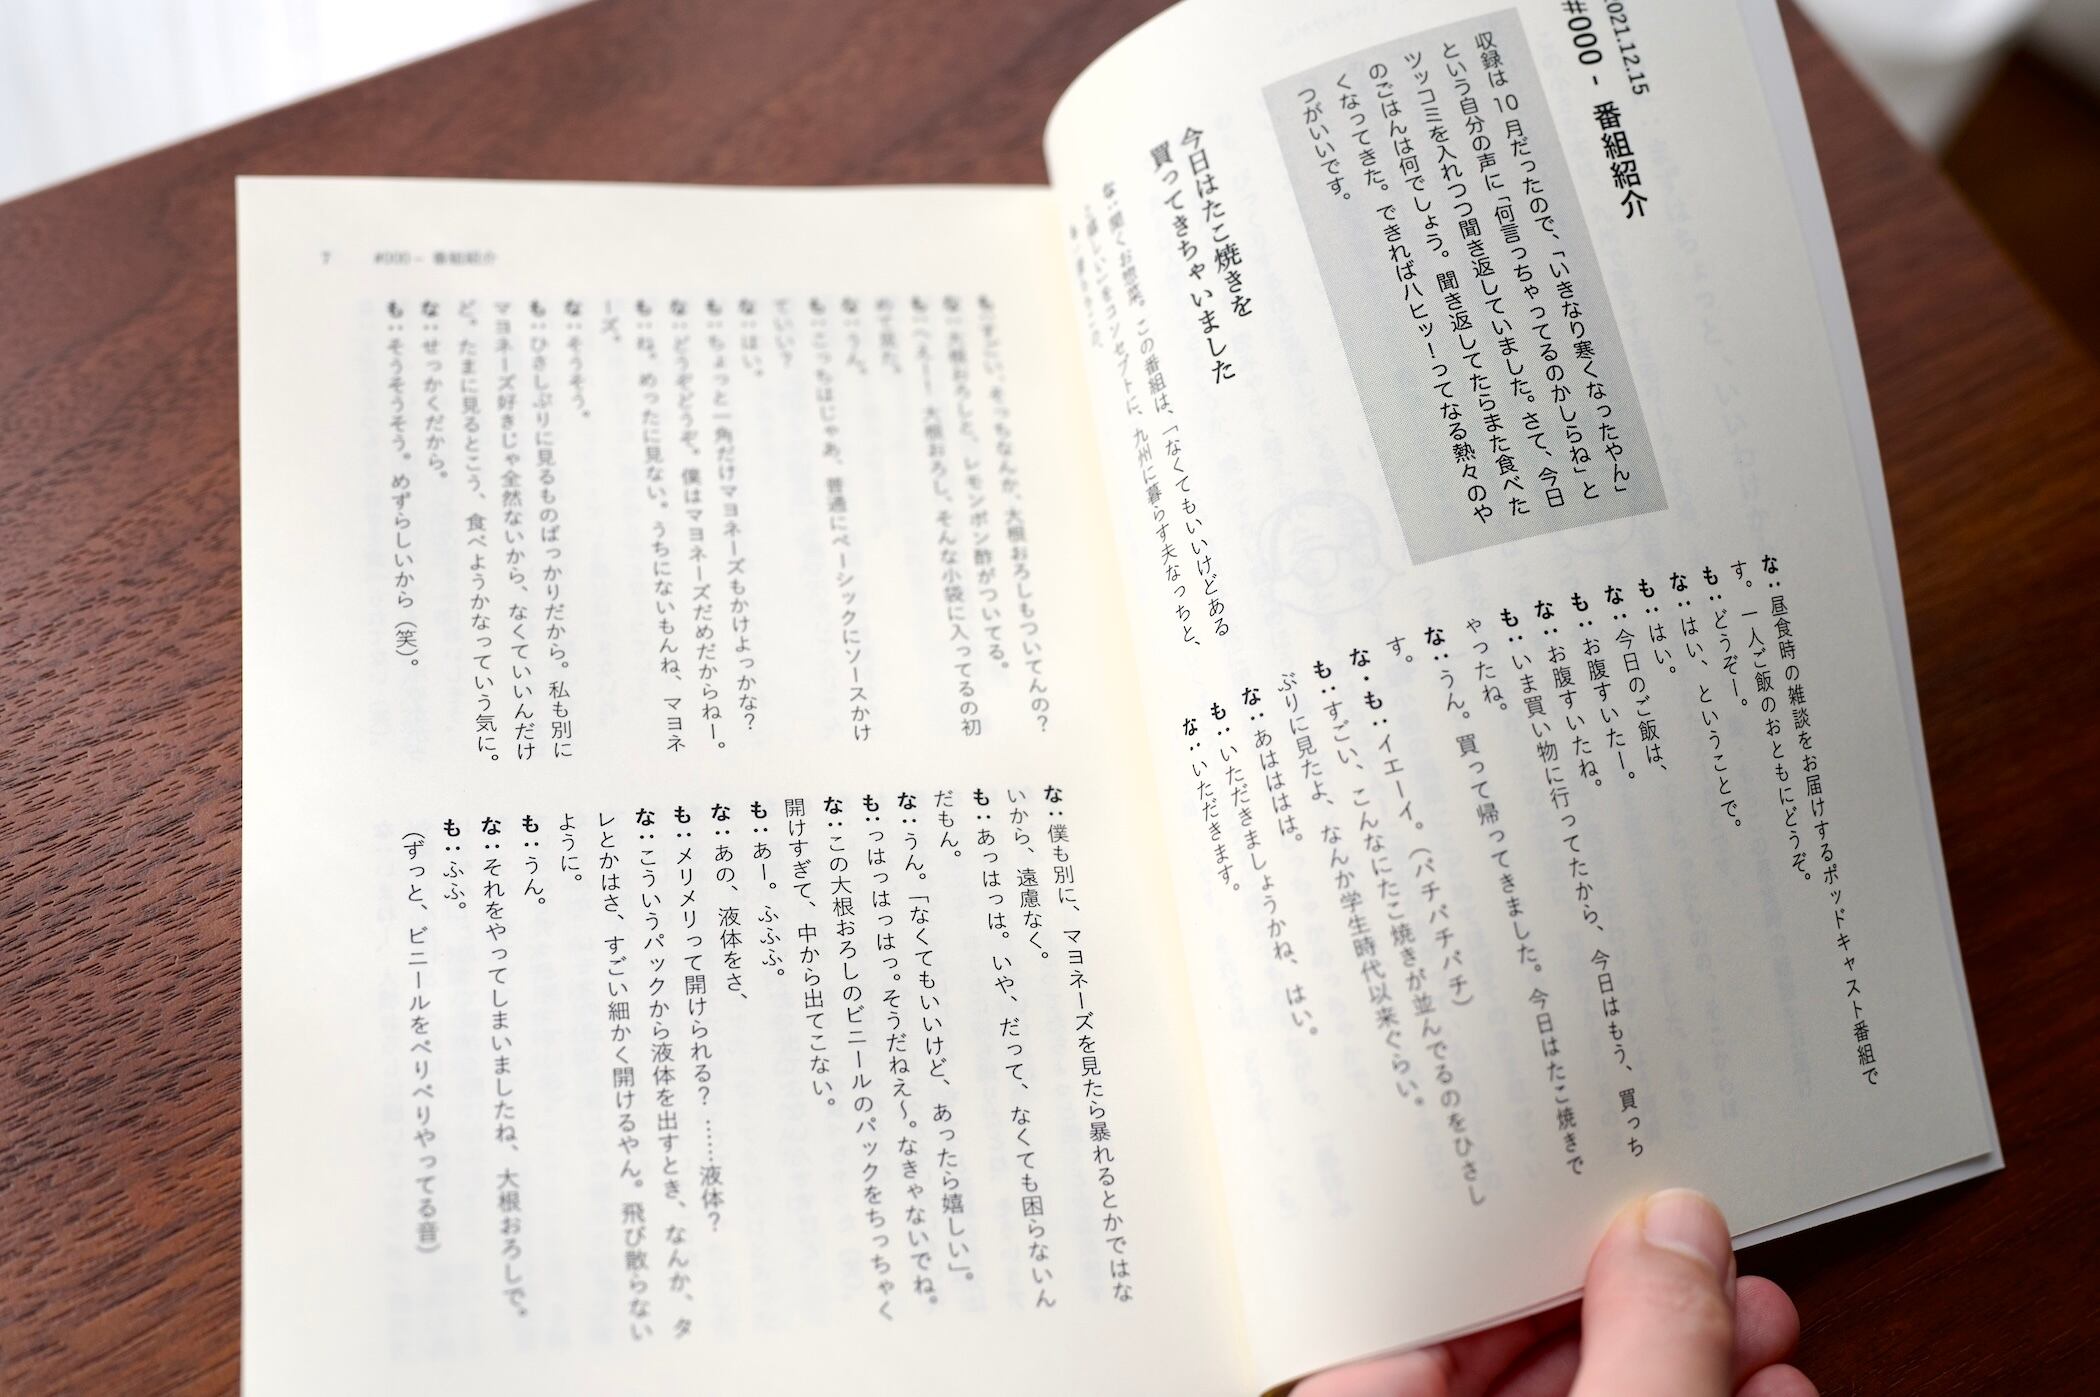 2021.12.15
#000 - 番組紹介
収録は10月だったので、「いきなり寒くなったやん」
という自分の声に「何言っちゃってるのかしらね」と
ツッコミを入れつつ聞き返していました。さて、今日
のごはんは何でしょう。聞き返してたらまた食べた
くなってきた。できればハヒッ!ってなる熱々のや
つがいいです。
今日はたこ焼きを
買ってきちゃいました
な:聞くお惣菜。この番組は、「なくてもいいけどある
と嬉しい」をコンセプトに、九州に暮らす夫なっちと、
な:昼食時の雑談をお届けするポッドキャスト番組で
す。一人ご飯のおともにどうぞ。
も:どうぞー。
な:はい、ということで。
も:はい。
な:今日のご飯は、
も:お腹すいたー。
な:お腹すいたね。
も:いま買い物に行ってたから、今日はもう、買っち
ゃったね。
な:うん。買って帰ってきました。今日はたこ焼きで
す。
な・も:イエーイ。(パチパチパチ)
も:すごい、こんなにたこ焼きが並んでるのをひさし
ぶりに見たよ、なんか学生時代以来ぐらい。
な:あはははは。
も:いただきましょうかね、はい。
な:いただきます。
7 #000 - 番組紹介
も:すごい、そっちなんか、大根おろしもついてんの?
な:大根おろしと、レモンポン酢がついてる。
も:へえー!大根おろし、そんな小袋に入ってるの初
めて見た。
な:うん。
も:こっちはじゃあ、普通にベーシックにソースかけ
ていい?
な:はい。
も:ちょっと一角だけマヨネーズもかけよっかな?
な:どうぞどうぞ。僕はマヨネーズだめだからねー。
も:ね。めったに見ない。うちにないもんね、マヨネ
ーズ。
な:そうそう。
も:ひさしぶりに見るものばっかりだから。私も別に
マヨネーズ好きじゃ全然ないから、なくていいんだけ
ど。たまに見るとこう、食べようかなっていう気に。
な:せっかくだから。
も:そうそうそう。めずらしいから(笑)。
な:僕も別に、マヨネーズを見たら暴れるとかではな
いから、遠慮なく。
も:あっはっは。いや、だって、なくても困らないん
だもん。
な:うん。「なくてもいいけど、あったら嬉しい」。
も:っはっはっはっ。そうだねえ〜。なきゃないでね。
な:この大根おろしのビニールのパックをちっちゃく
開けすぎて、中から出てこない。
も:あー。ふふふ。
な:あの、液体をさ、
も:メリメリって開けられる?……液体?
な:こういうパックから液体を出すとき、なんか、タ
レとかはさ、すごい細かく開けるやん。飛び散らない
ように。
も:うん。
な:それをやってしまいましたね、大根おろしで。
も:ふふ。
(ずっと、ビニールをペリペリやってる音)